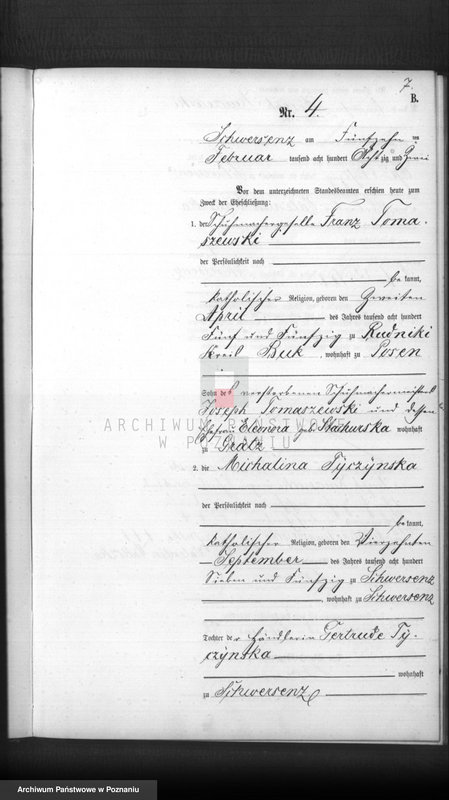 7.
B.
Nr. 4.
Schwersenz am Fünfzehn ten
Februar tausend acht hundert Acht zig und Zwei
Vor dem unterzeichneten Standesbeamten erschien heute zum
Zweck der Eheschließung:
1. der Schuhmachergeselle Franz Toma-
szewski
der Persönlichkeit nach
be kannt,
katholischer Religion, geboren den Zweiten
April des Jahres tausend acht hundert
Fünf und Fünfzig zu Rudniki
Kreis Buk, wohnhaft zu Posen
Sohn des verstorbenen Schuhmachermeisters
Joseph Tomaszewski und dessen
Ehefrau Eleonora geb. Stachurska wohnhaft
zu Grätz
ARCHIWUM PAŃSTWOWE
W POZNANIU
2. die Michalina Tyczýnska
der Persönlichkeit nach
be kannt,
katholischer Religion, geboren den Vierzehnten
September des Jahres tausend acht hundert
Sieben und Fünfzig zu Schwersenz
, wohnhaft zu Schwersenz
Tochter der Händlerin Gertrude Ty-
czýnska
wohnhaft
zu Schwersenz
Archiwum Państwowe w Poznaniu